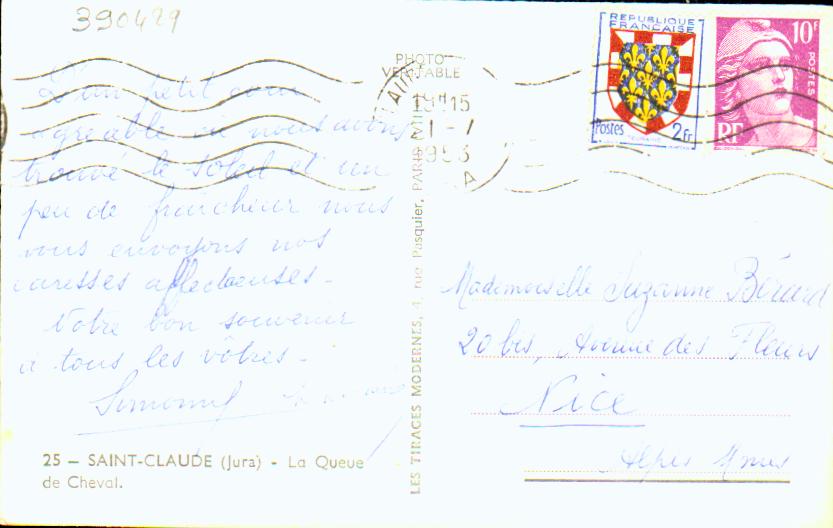 390429
PHOTO
VERITABLE
D'un petit coin
agréable où nous avons
trouvé le soleil et un
peu de fraîcheur nous
vous envoyons nos
caresses affectueuses -
Notre bon souvenir
à tous les vôtres -
25 - SAINT-CLAUDE (Jura) - La Queue
de Cheval.
LES TIRAGES MODERNES, 4, rue Pasquier, PARIS
19H15
1 - 7
1953
REPUBLIQUE
FRANÇAISE
Postes 2fr
10F
POSTES
RF
Mademoiselle Suzanne Bérard
20 bis, Avenue des Fleurs
Nice
Alpes Mmes